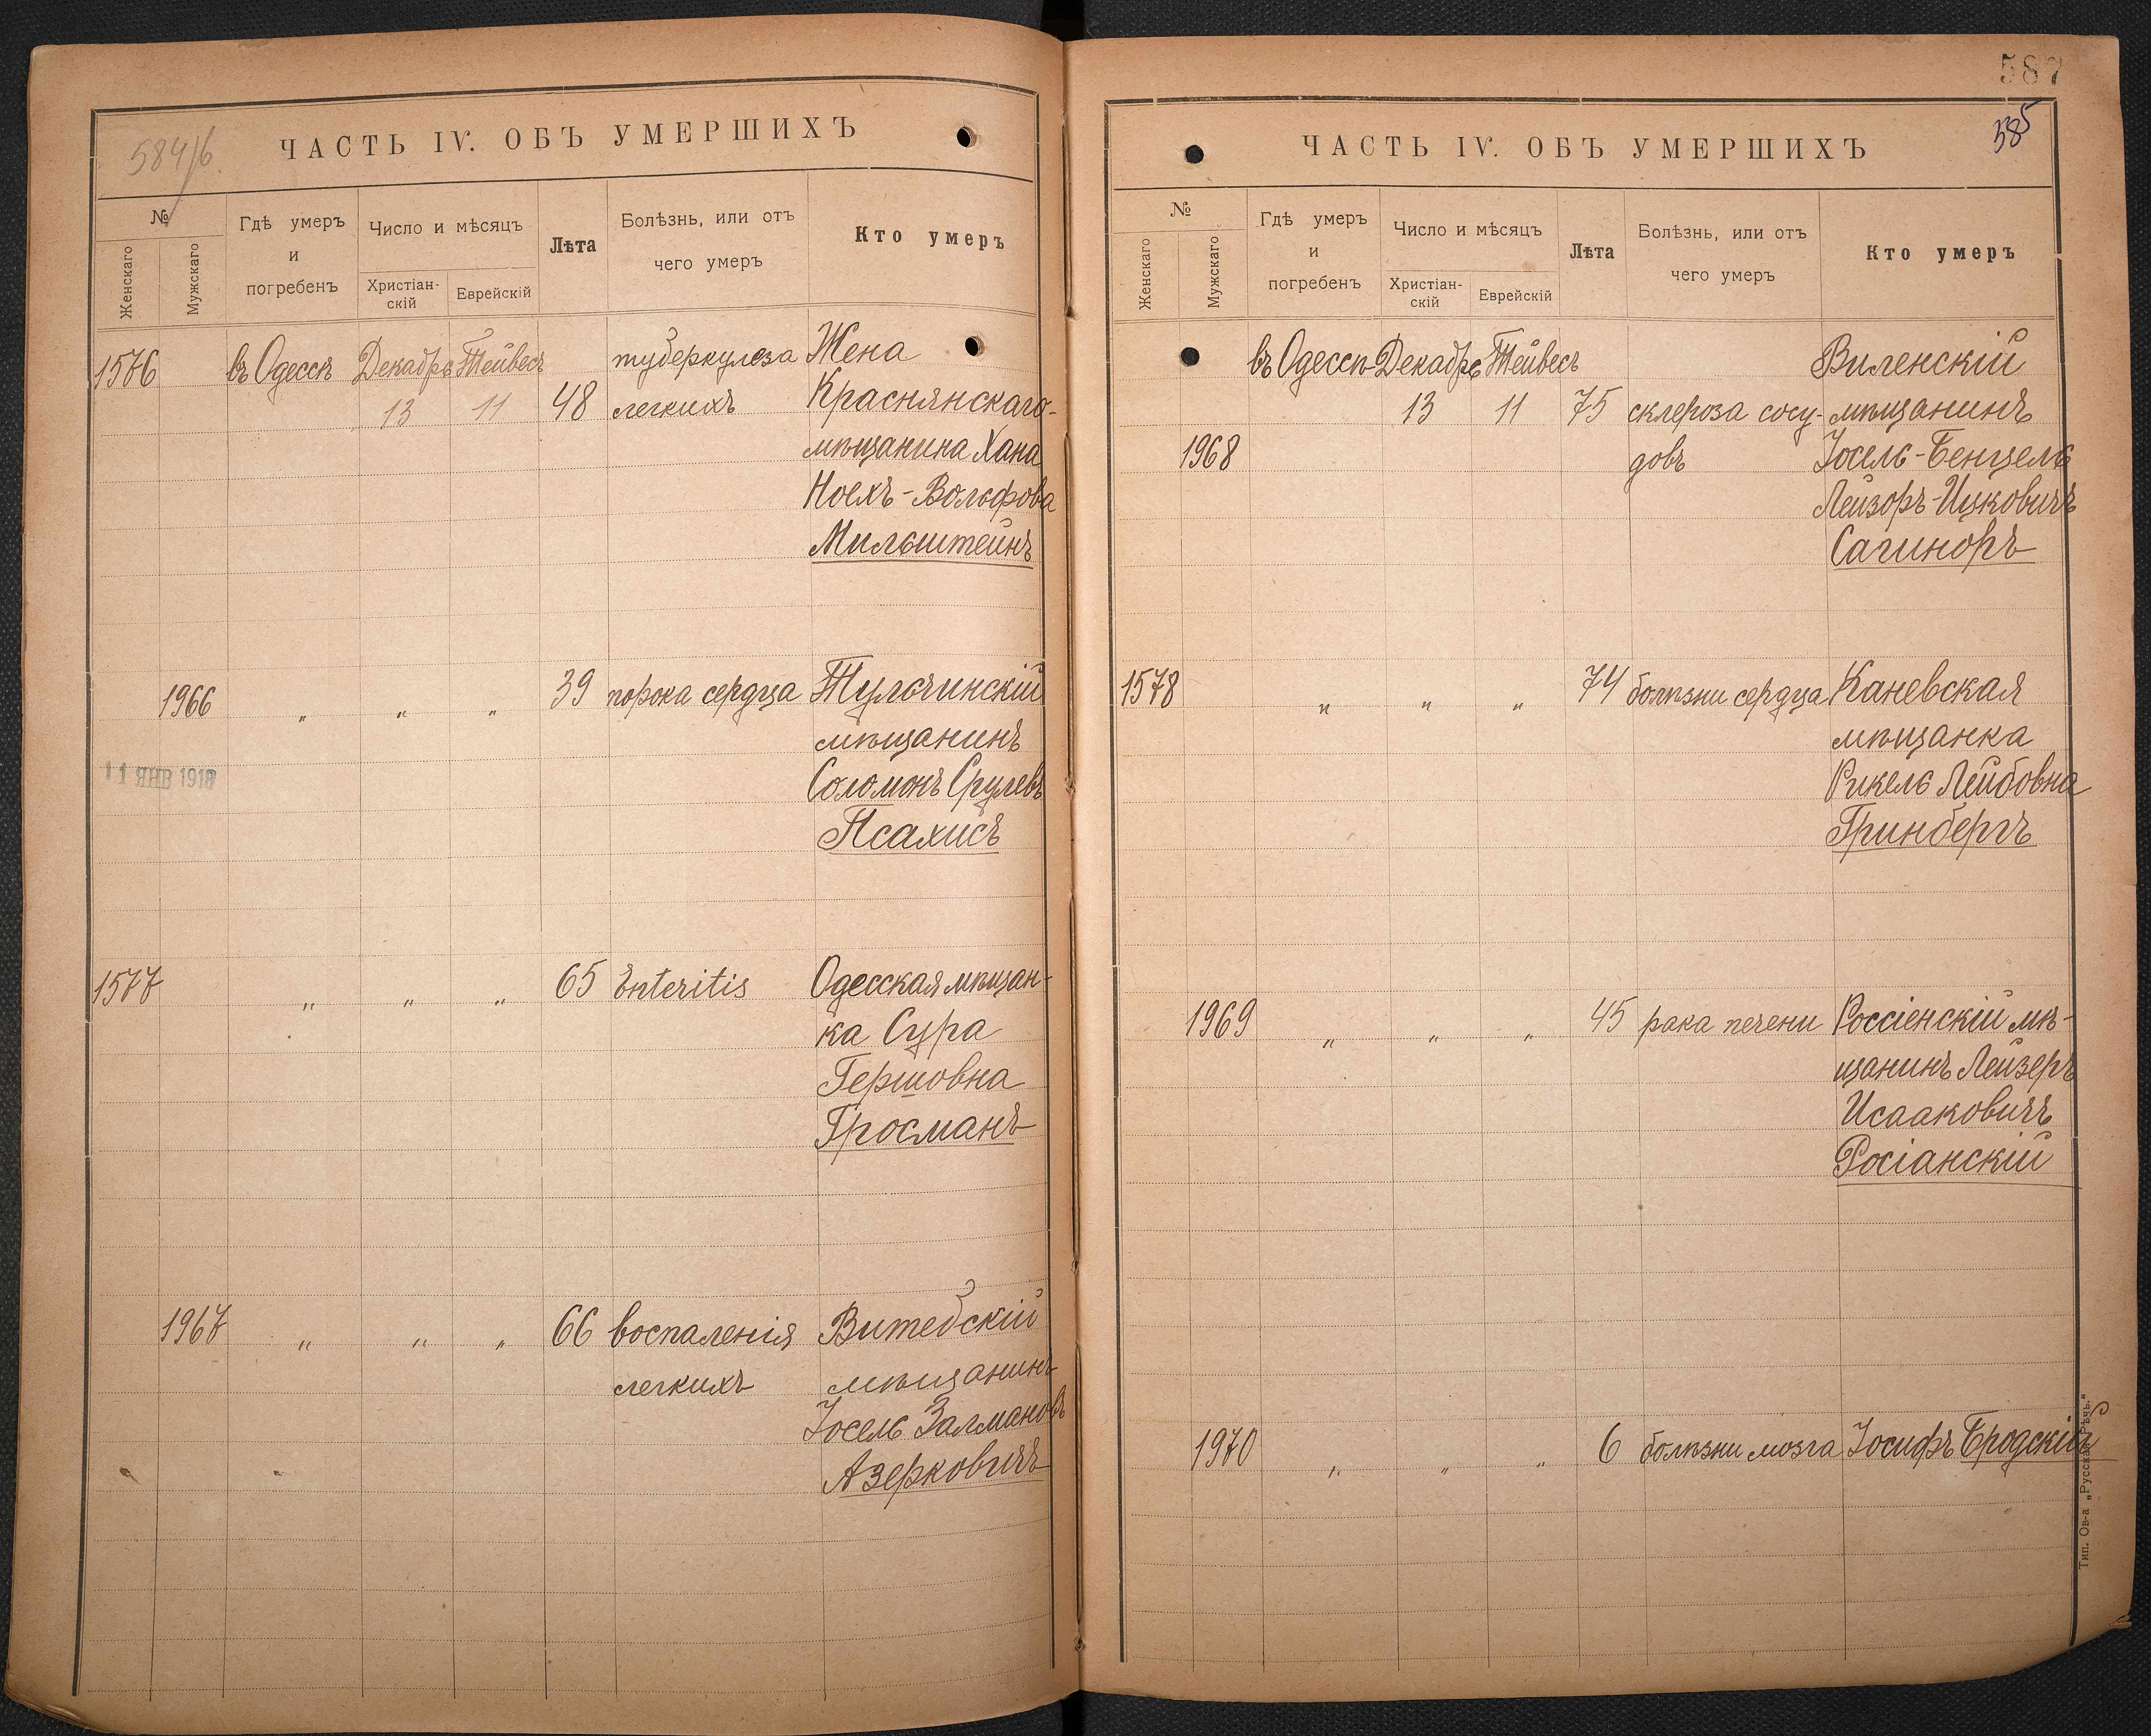 584/б
ЧАСТЬ IV. ОБЪ УМЕРШИХЪ
№
Женскаго
Мужскаго
Гдѣ умеръ
и
погребенъ
Число и мѣсяцъ
Христіан-
скій
Еврейскій
Лѣта
Болѣзнь, или отъ
чего умеръ
Кто умеръ
1576 въ Одессѣ Декабрь Тейвесъ туберкулеза Жена
13 11 48 легкихъ Краснянскаго
мѣщанина Хана
Ноехъ-Вольфова
Мильштейнъ
1966 " " " 39 порока сердца Тульчинскій
мѣщанинъ
11 ЯНВ 1918
Соломонъ Срулевъ
Псахисъ
1577 " " " 65 Enteritis Одесская мѣщан-
ка Сура
Гершовна
Гросманъ
1967 " " " 66 воспаленія Витебскій
легкихъ мѣщанинъ
Іосель Залмановъ
Азерковичъ
587
585
ЧАСТЬ IV. ОБЪ УМЕРШИХЪ
№
Женскаго
Мужскаго
Гдѣ умеръ
и
погребенъ
Число и мѣсяцъ
Христіан-
скій
Еврейскій
Лѣта
Болѣзнь, или отъ
чего умеръ
Кто умеръ
въ Одессѣ Декабрь Тейвесъ Виленскій
13 11 75 склероза сосу- мѣщанинъ
1968 довъ Іосель-Бенцель
Лейзоръ-Ицковичъ
Сагиноръ
1578 " " " 74 болѣзни сердца Каневская
мѣщанка
Рикель Лейбовна
Гринбергъ
1969 " " " 45 рака печени Россіенскій мѣ-
щанинъ Лейзеръ
Исааковичъ
Росіанскій
1970 " " " 6 болѣзни мозга Іосифъ Бродскій
Тип. Ов-а „Русская Рѣчь."